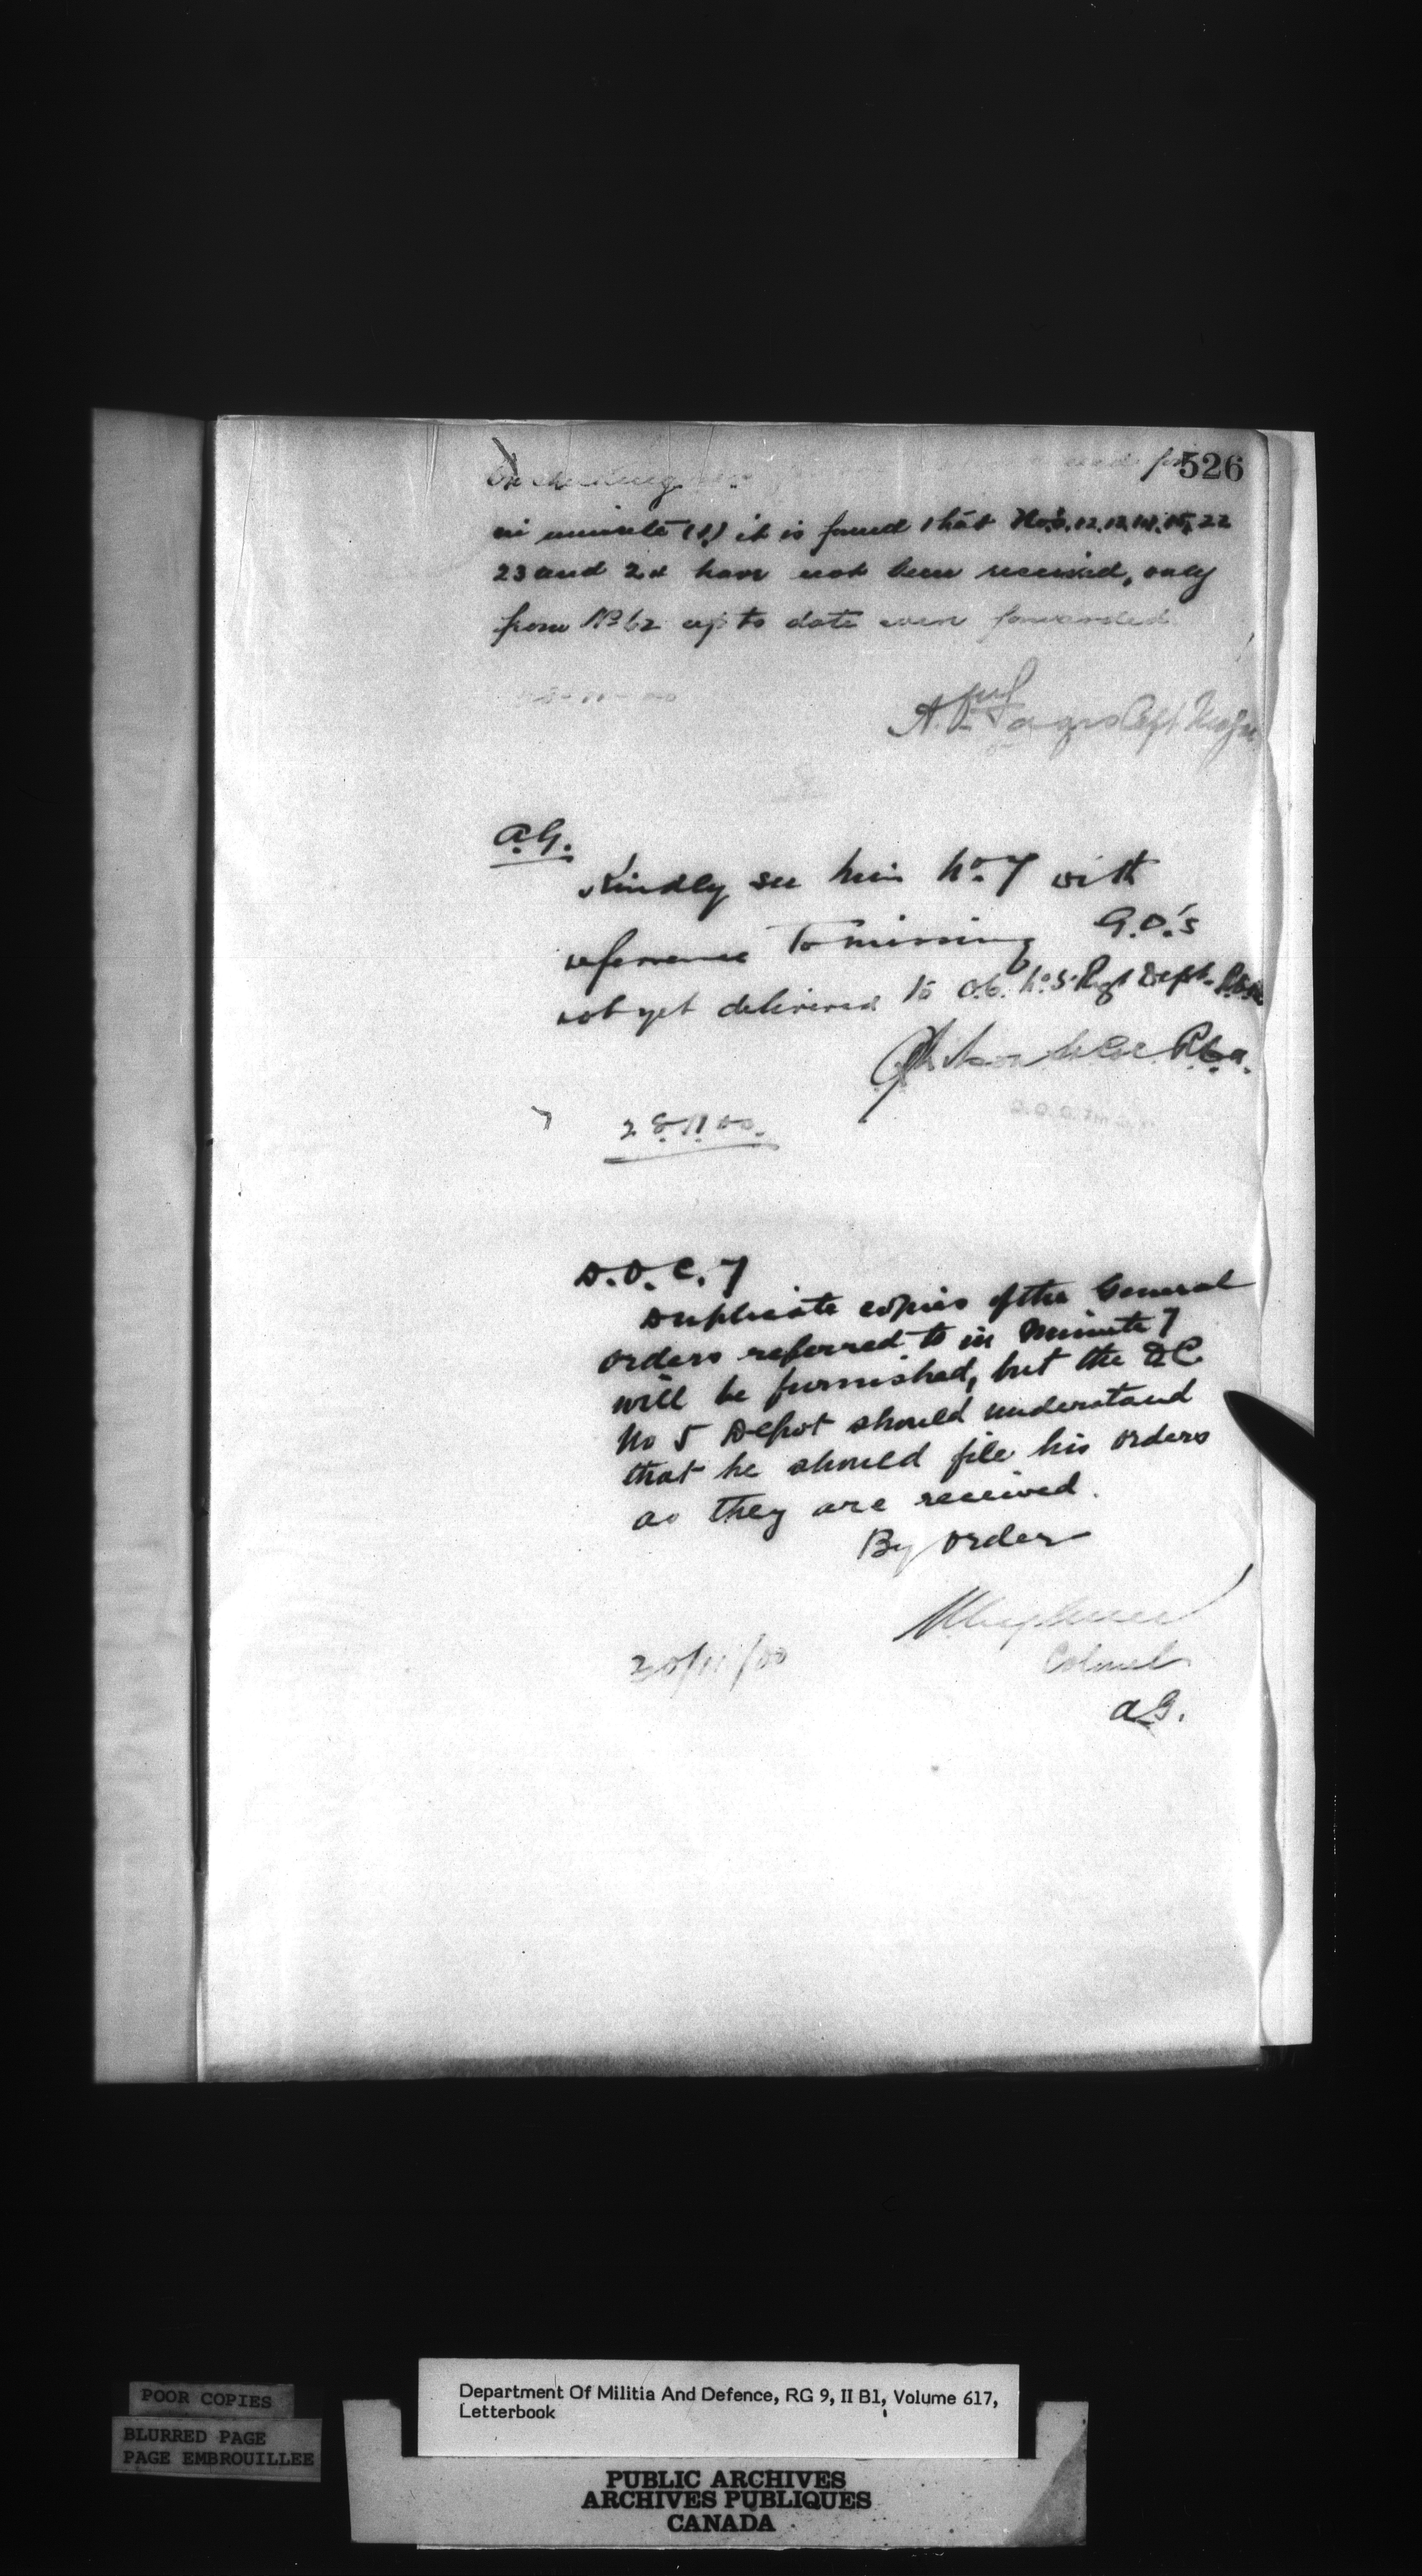 526
in minute (1) it is found that No's. 12, 13, 14, 15, 22
23 and 24 have not been received, only
from No 62 up to date were forwarded
A.G.
Kindly see Min No. 7 with
reference to missing G.O.'s
not yet delivered to O.C. No. 5 Regt Depot
28.11.00.
D.O.C. 7
Duplicate copies of the General
orders referred to in Minute 7
will be furnished, but the O.C.
No 5 Depot should understand
that he should file his orders
as they are received.
By order
Colonel
30/11/00
A.G.
Department Of Militia And Defence, RG 9, II B1, Volume 617,
Letterbook
POOR COPIES
BLURRED PAGE
PAGE EMBROUILLEE
PUBLIC ARCHIVES
ARCHIVES PUBLIQUES
CANADA